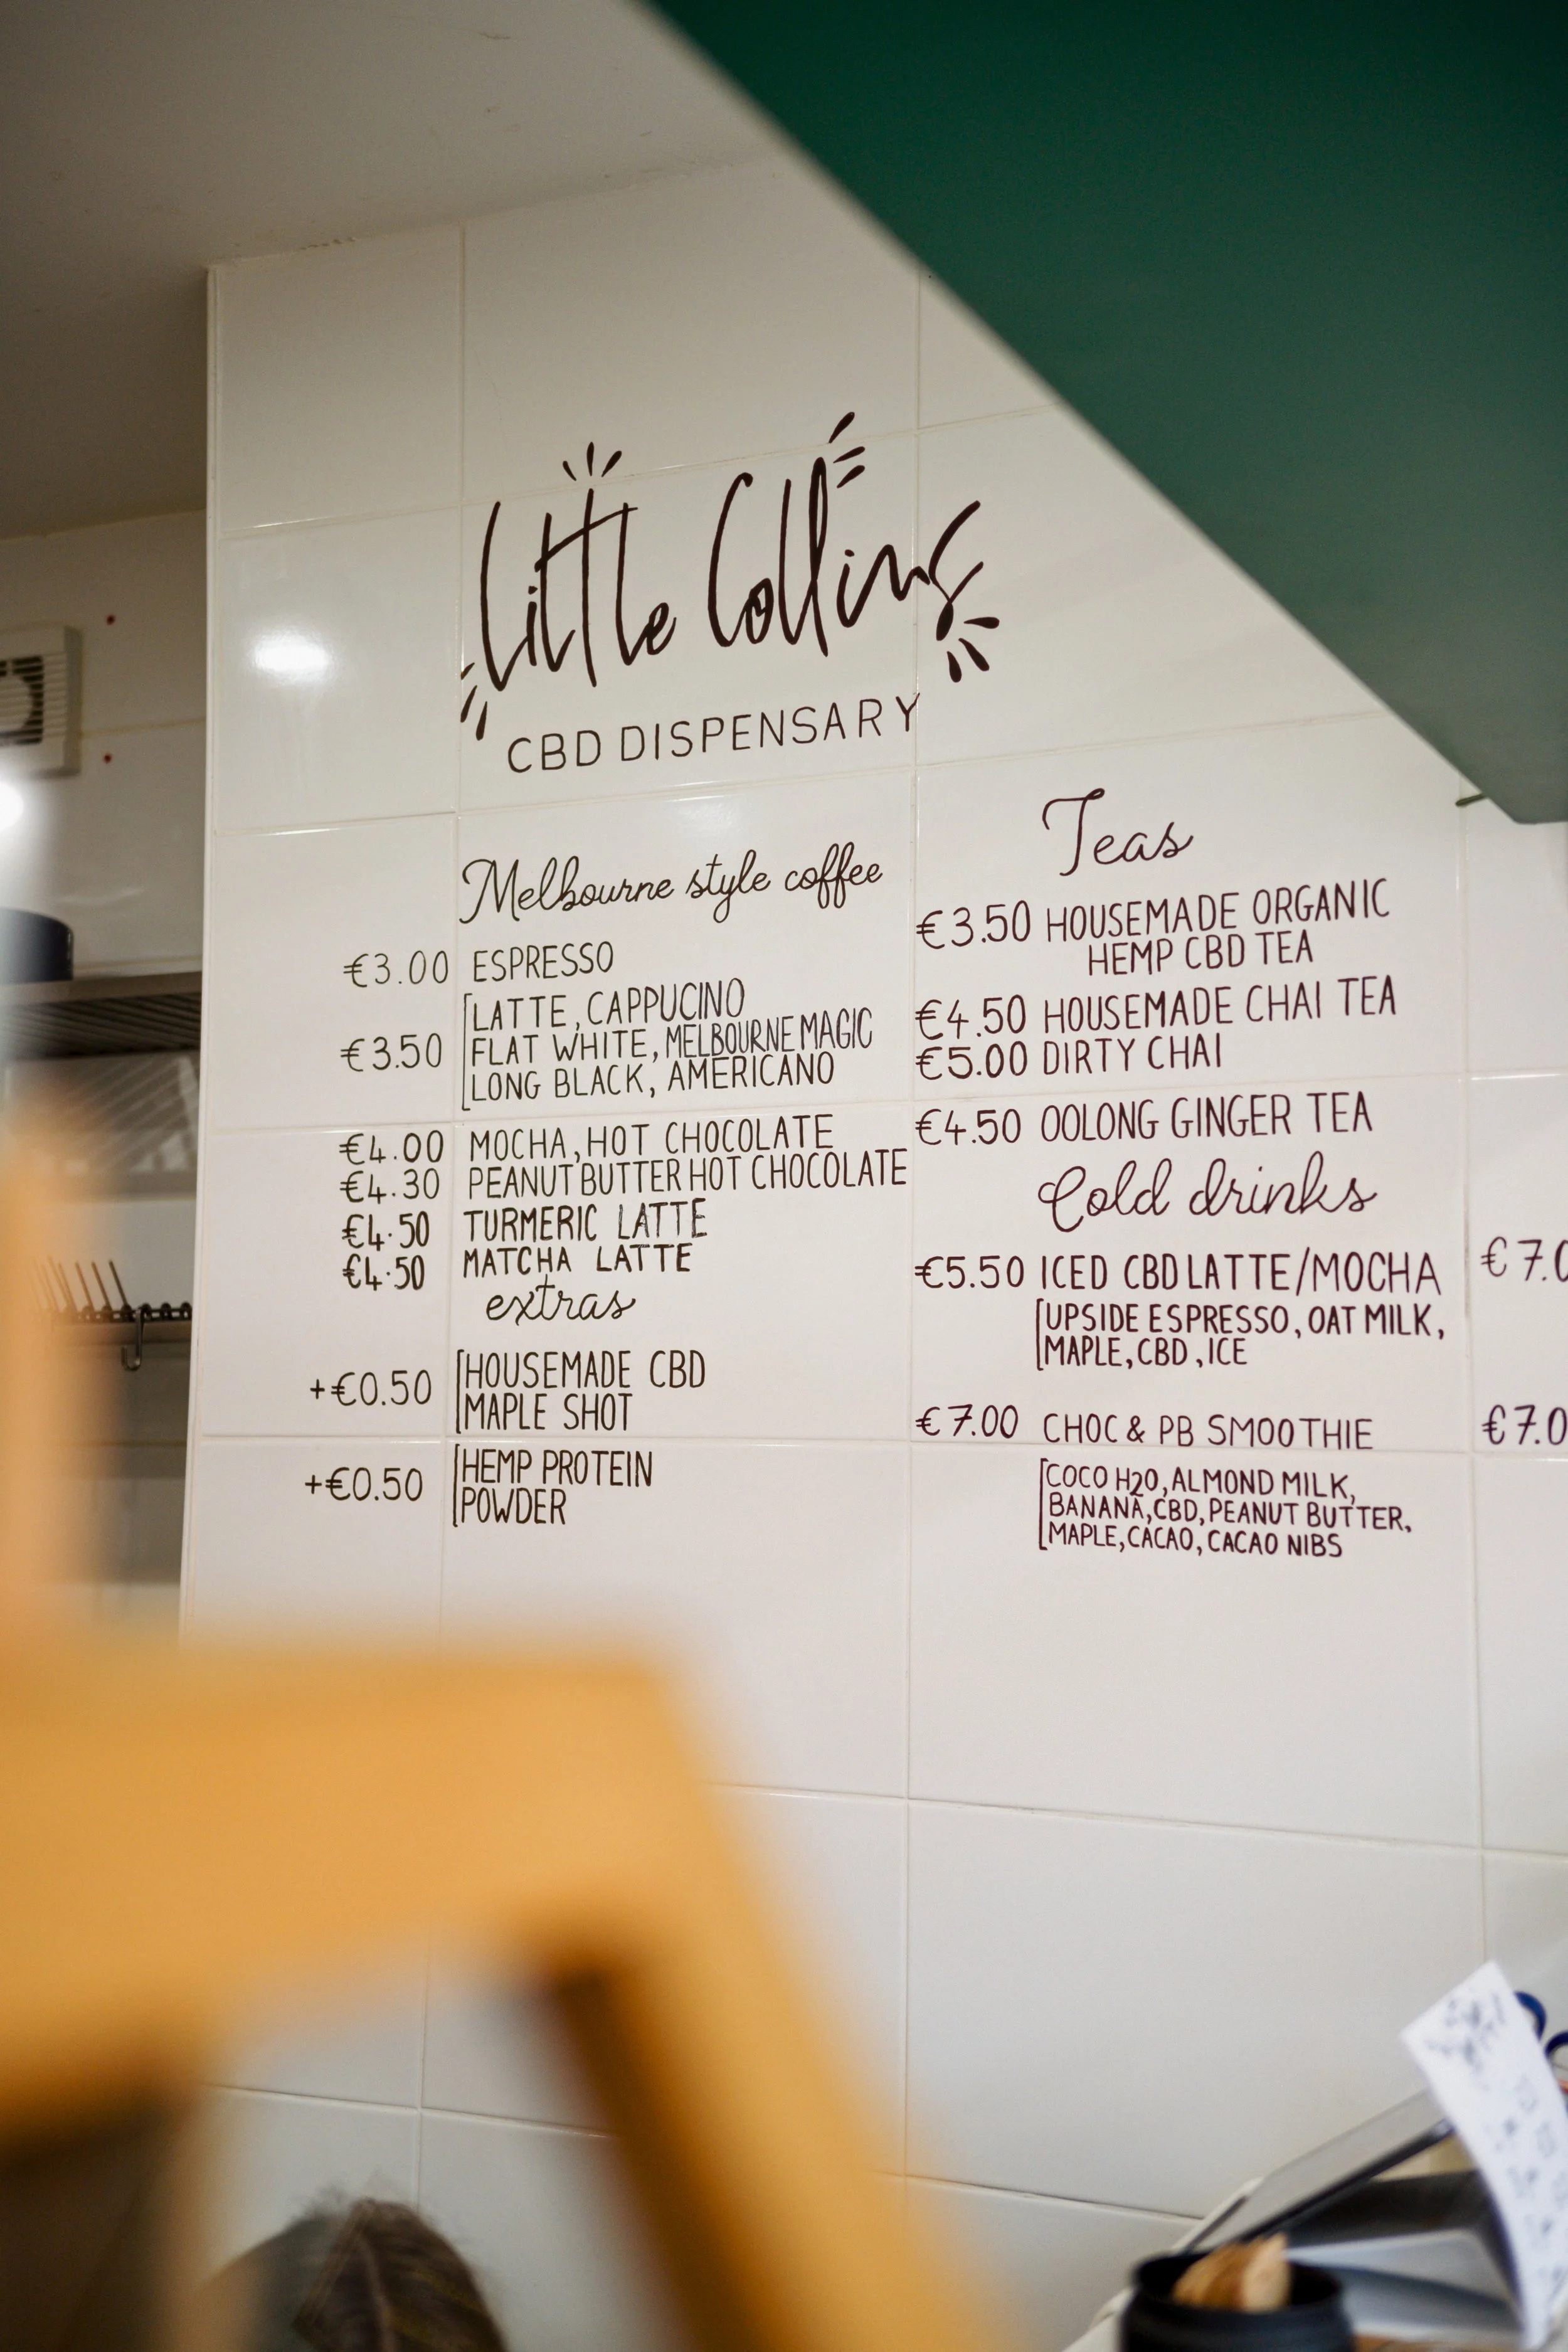 Little Collins
CBD DISPENSARY
Melbourne style coffee
€3.00 ESPRESSO
LATTE, CAPPUCINO
€3.50 FLAT WHITE, MELBOURNE MAGIC
LONG BLACK, AMERICANO
€4.00 MOCHA, HOT CHOCOLATE
€4.30 PEANUT BUTTER HOT CHOCOLATE
€4.50 TURMERIC LATTE
€4.50 MATCHA LATTE
extras
+€0.50 HOUSEMADE CBD
MAPLE SHOT
+€0.50 HEMP PROTEIN
POWDER
Teas
€3.50 HOUSEMADE ORGANIC
HEMP CBD TEA
€4.50 HOUSEMADE CHAI TEA
€5.00 DIRTY CHAI
€4.50 OOLONG GINGER TEA
Cold drinks
€5.50 ICED CBD LATTE/MOCHA
UPSIDE ESPRESSO, OAT MILK,
MAPLE, CBD, ICE
€7.00 CHOC & PB SMOOTHIE
COCO H2O, ALMOND MILK,
BANANA, CBD, PEANUT BUTTER,
MAPLE, CACAO, CACAO NIBS
€7.0
€7.0